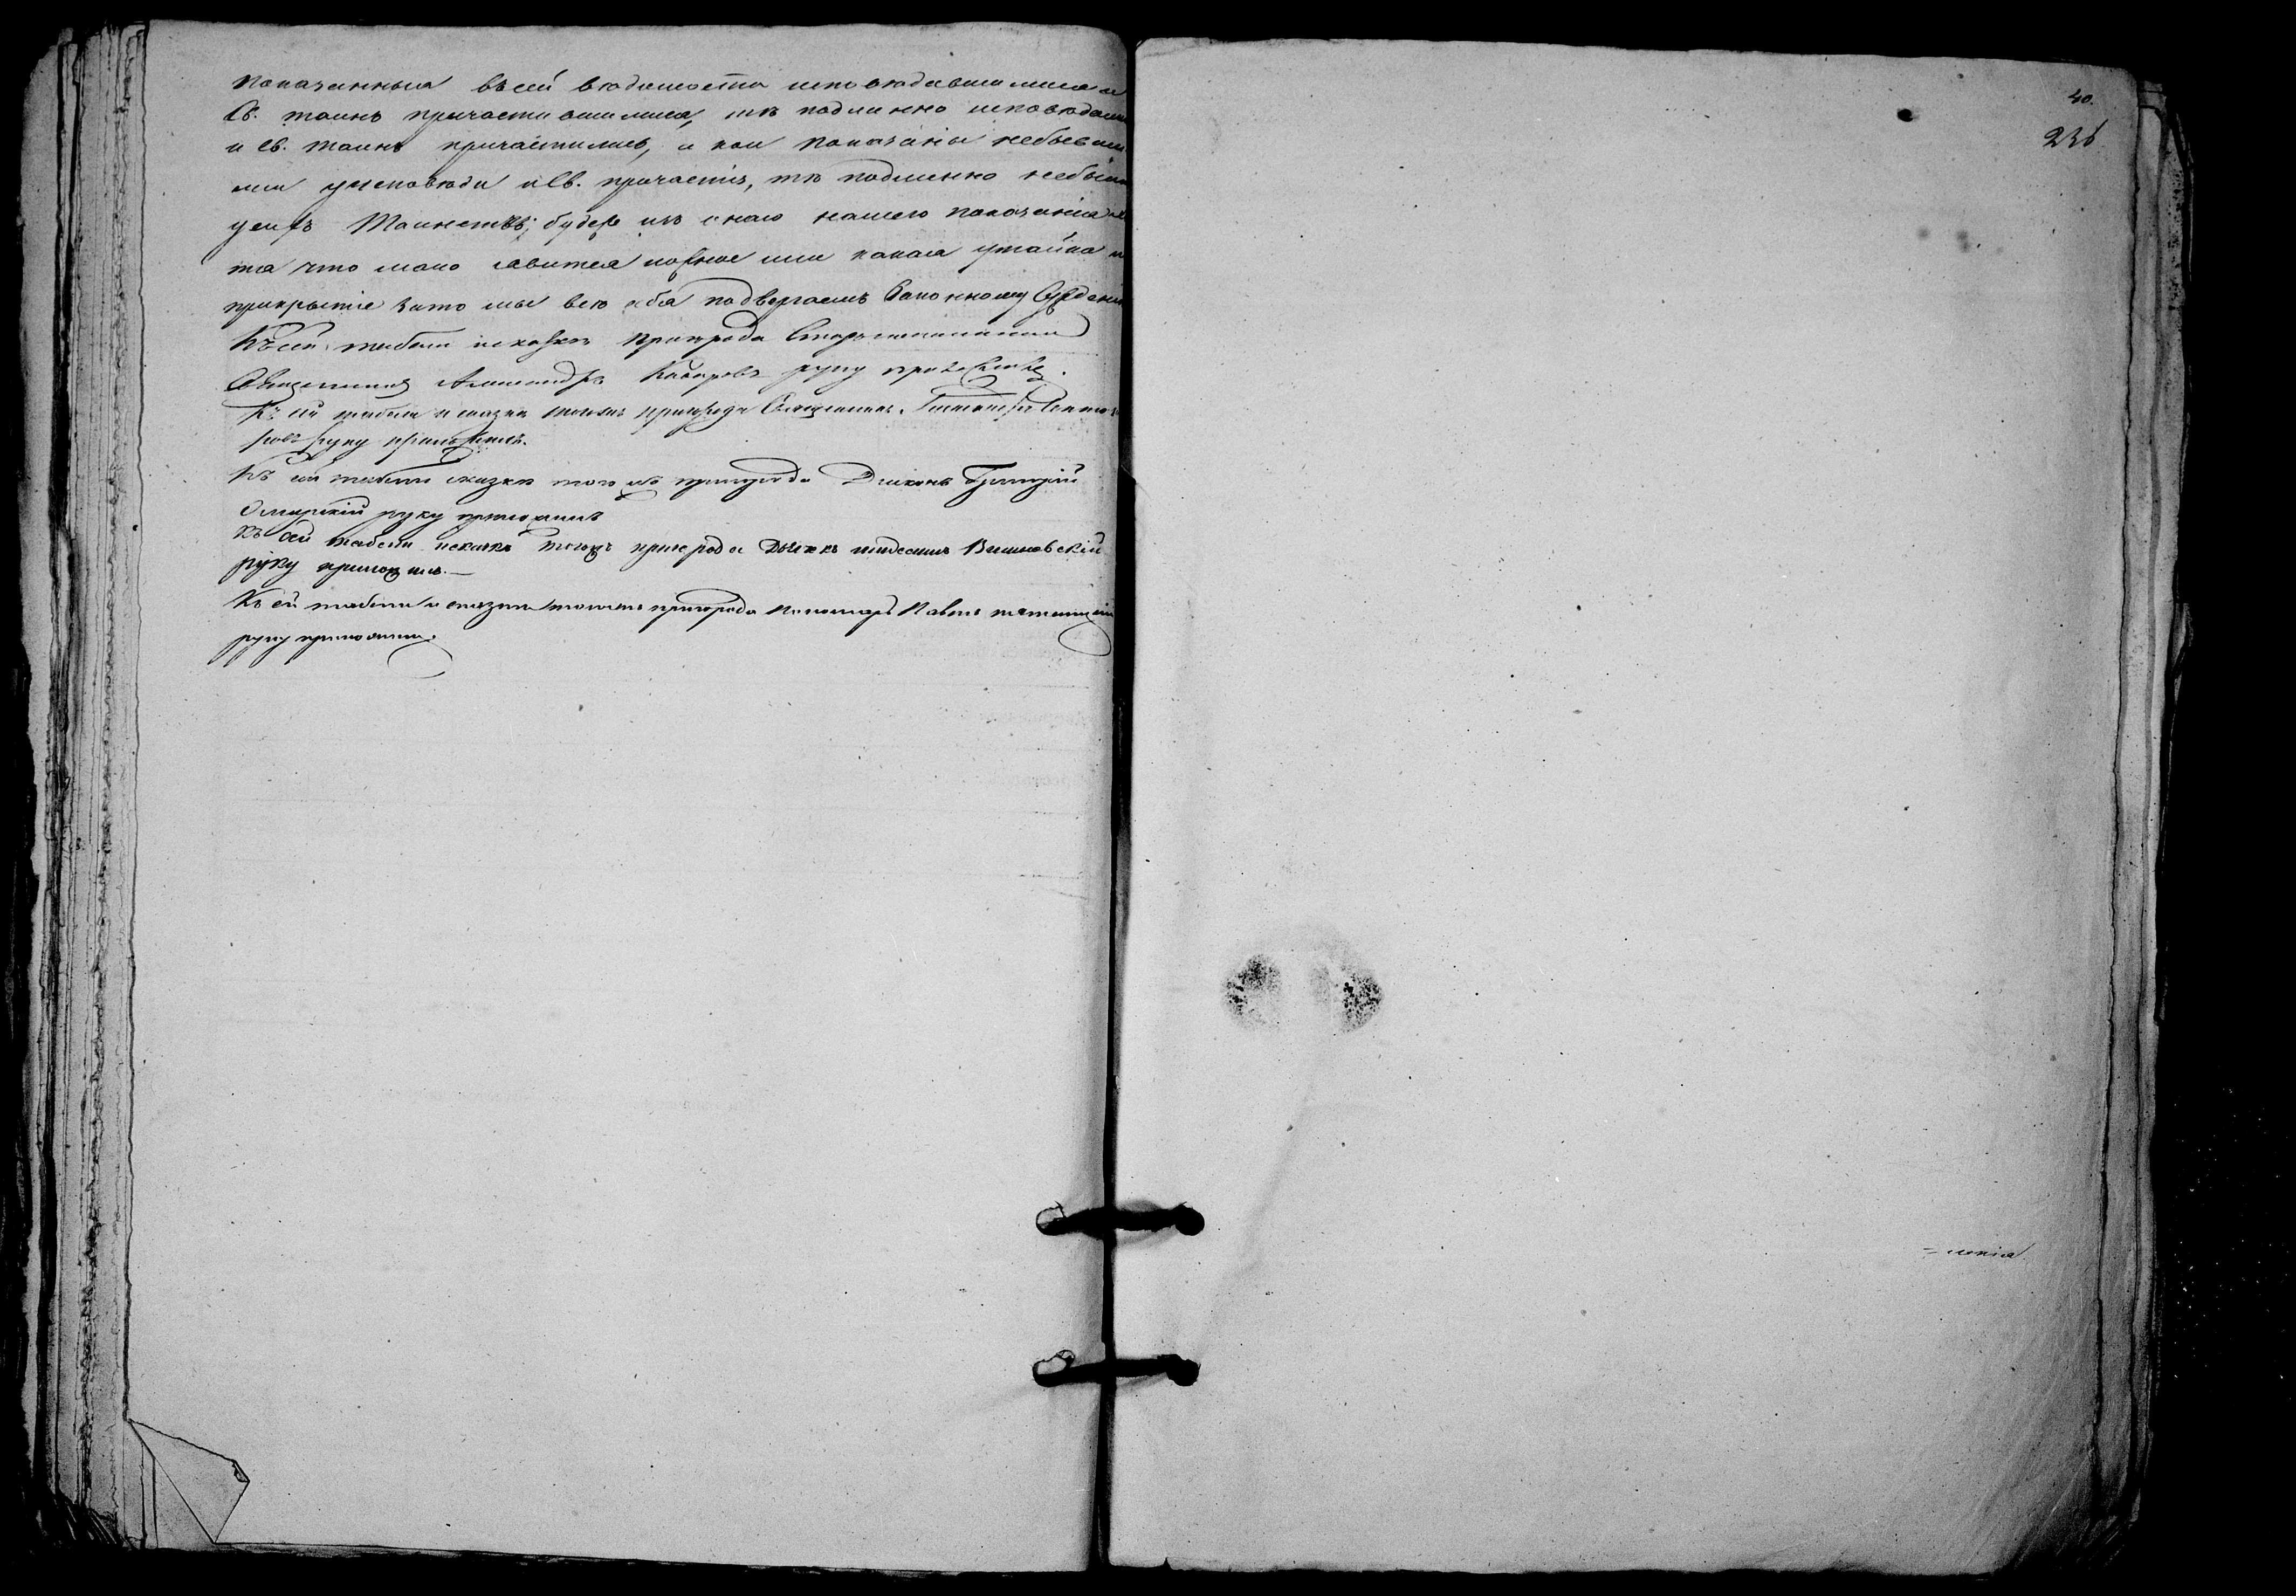 показанныя въ сей вѣдомости исповѣдавшимися и
Св. таинъ причастившимися, тѣ подлинно исповѣдали
и Св. таинъ причастились, а кои показаны небывши
ми уисповѣди и Св. причастія, тѣ подлинно небыли
усихъ Таинствъ; будеже изъ сего нашего показанія
та что мало явится ложное или какая утайка и
прикрытіе зато мы всѣ себя подвергаемъ Законному Сужденію
Къ сей табели и сказкѣ пригорода
Священникъ Александръ руку приложилъ.
Къ сей табели и сказкѣ тогожъ пригорода Священникъ
ровъ руку приложилъ.
Къ сей табели сказкѣ того жъ пригорода Диаконъ Григорій
руку приложилъ
Къ сей табели искаскѣ тогожъ пригорода Дьячекъ Вишневскій
руку приложилъ.—
Къ сей табели и сказкѣ тогожъ пригорода пономарь Павелъ
руку приложилъ.
40.
236